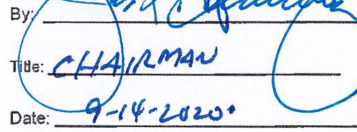 By:
Title: CHAIRMAN
Date: 9-14-2020